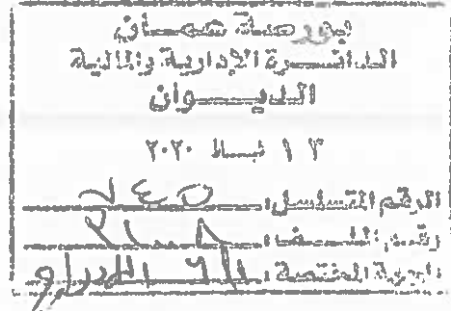 بورصة عمان
الدائرة الإدارية والمالية
الديوان
١٣ شباط ٢٠٢٠
الرقم المتسلسل: ٧٤٥
رقم الملف:
الجهة المختصة: